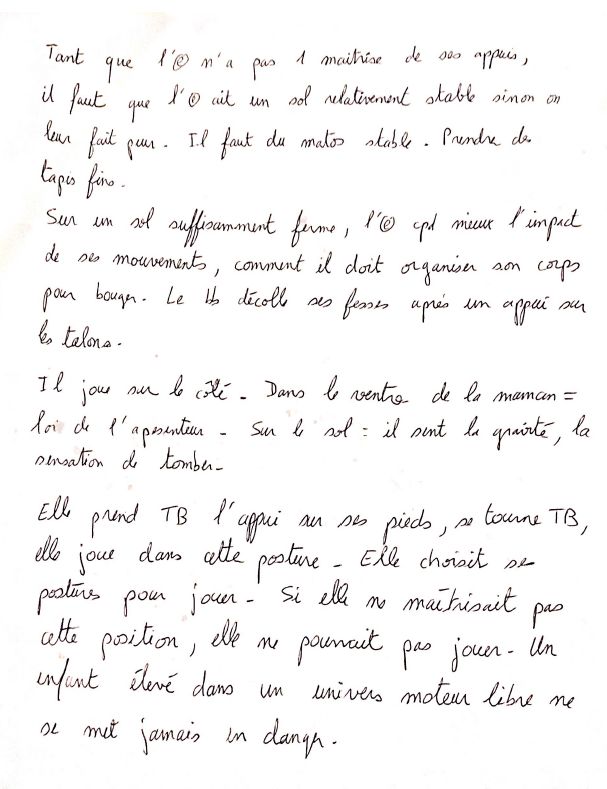 Tant que l'ⓔ n'a pas 1 maitrise de ses appuis,
il faut que l'ⓔ ait un sol relativement stable sinon on
leur fait peur. Il faut du matos stable. Prendre des
tapis fins.
Sur un sol suffisamment ferme, l'ⓔ cpd mieux l'impact
de ses mouvements, comment il doit organiser son corps
pour bouger. Le bb décolle ses fesses après un appui sur
les talons.
Il joue sur le côté - Dans le ventre de la maman =
loi de l'apesenteur - Sur le sol = il sent la gravité, la
sensation de tomber -
Elle prend TB l'appui sur ses pieds, se tourne TB,
elle joue dans cette posture - Elle choisit ses
postures pour jouer - Si elle ne maîtrisait pas
cette position, elle ne pourrait pas jouer - Un
enfant élevé dans un univers moteur libre ne
se met jamais en danger.